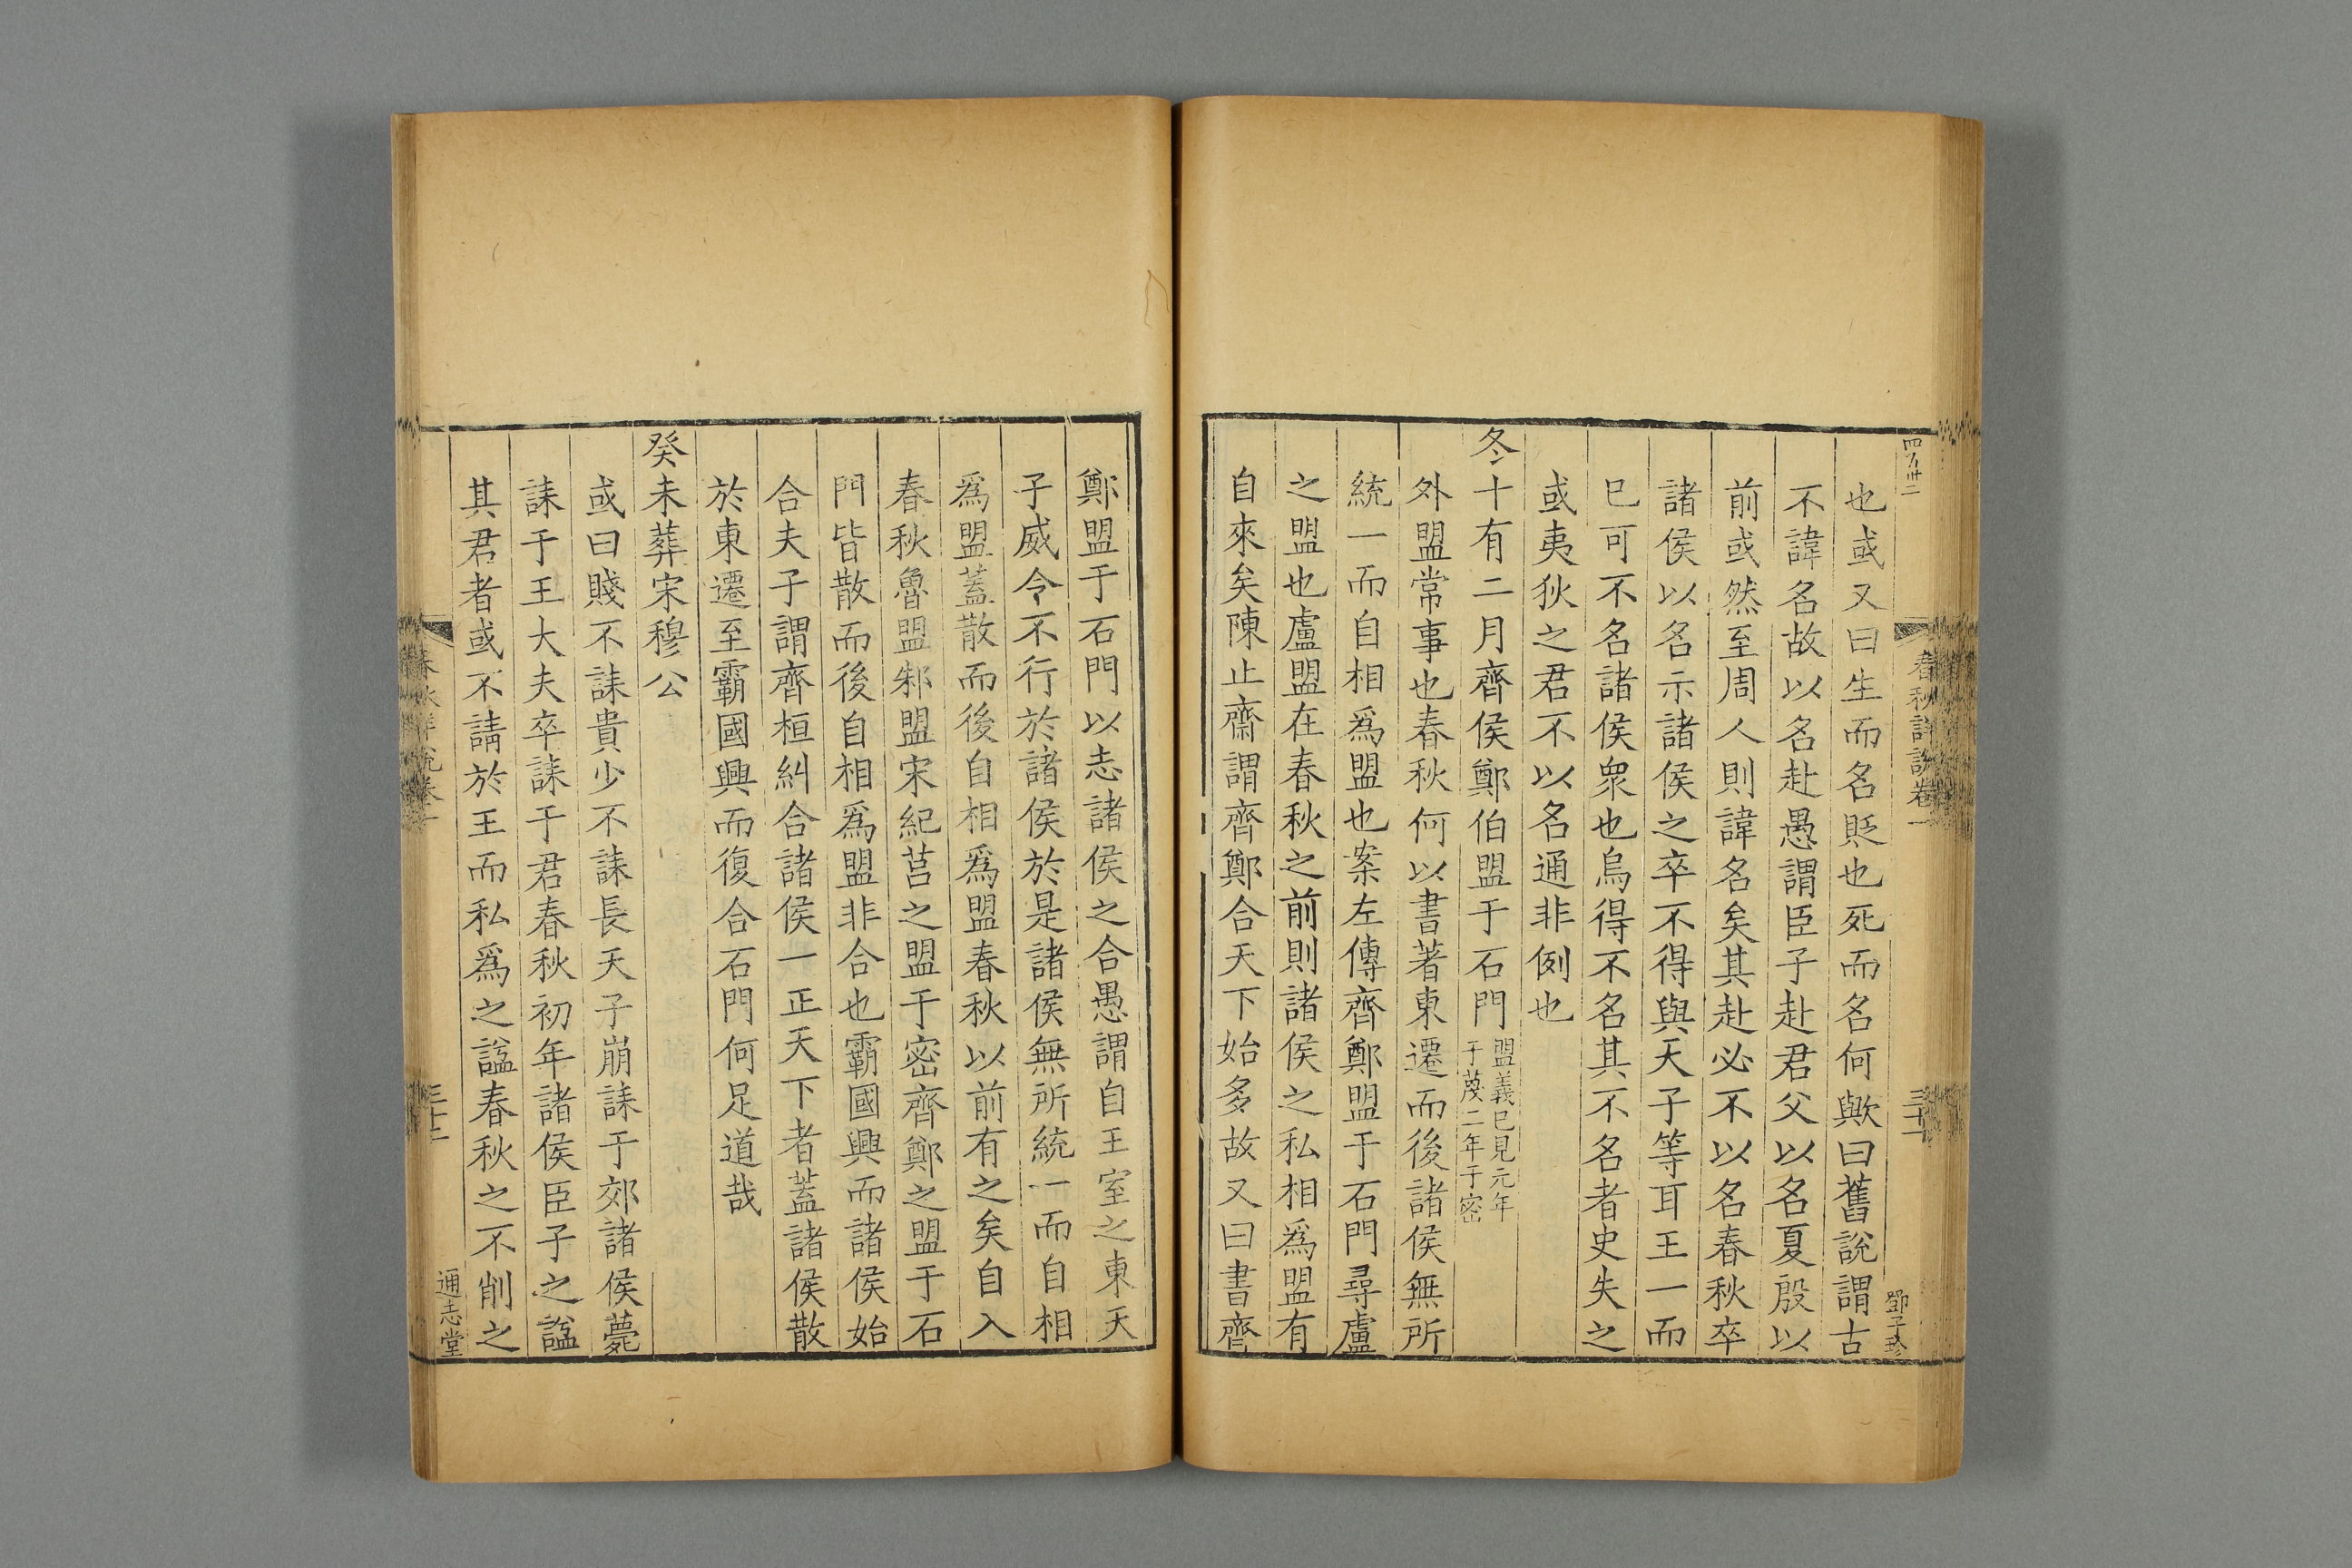 春秋詳說卷一
三十一
也或又曰生而名貶也死而名何歟曰舊說謂古
不諱名故以名赴愚謂臣子赴君父以名夏殷以
前或然至周人則諱名矣其赴必不以名春秋卒
諸侯以名示諸侯之卒不得與天子等耳王一而
已可不名諸侯衆也烏得不名其不名者史失之
或夷狄之君不以名通非例也
冬十有二月齊侯鄭伯盟于石門
盟義已見元年
于蔑二年于密
外盟常事也春秋何以書著東遷而後諸侯無所
統一而自相爲盟也案左傳齊鄭盟于石門尋盧
之盟也盧盟在春秋之前則諸侯之私相爲盟有
自來矣陳止齋謂齊鄭合天下始多故又曰書齊
鄭盟于石門以志諸侯之合愚謂自王室之東天
子威令不行於諸侯於是諸侯無所統一而自相
爲盟蓋散而後自相爲盟春秋以前有之矣自入
春秋魯盟邾盟宋紀莒之盟于密齊鄭之盟于石
門皆散而後自相爲盟非合也霸國興而諸侯始
合夫子謂齊桓糾合諸侯一正天下者蓋諸侯散
於東遷至霸國興而復合石門何足道哉
癸未葬宋穆公
或曰賤不誄貴少不誄長天子崩誄于郊諸侯薨
誄于王大夫卒誄于君春秋初年諸侯臣子之諡
其君者或不請於王而私爲之諡春秋之不削之
通志堂